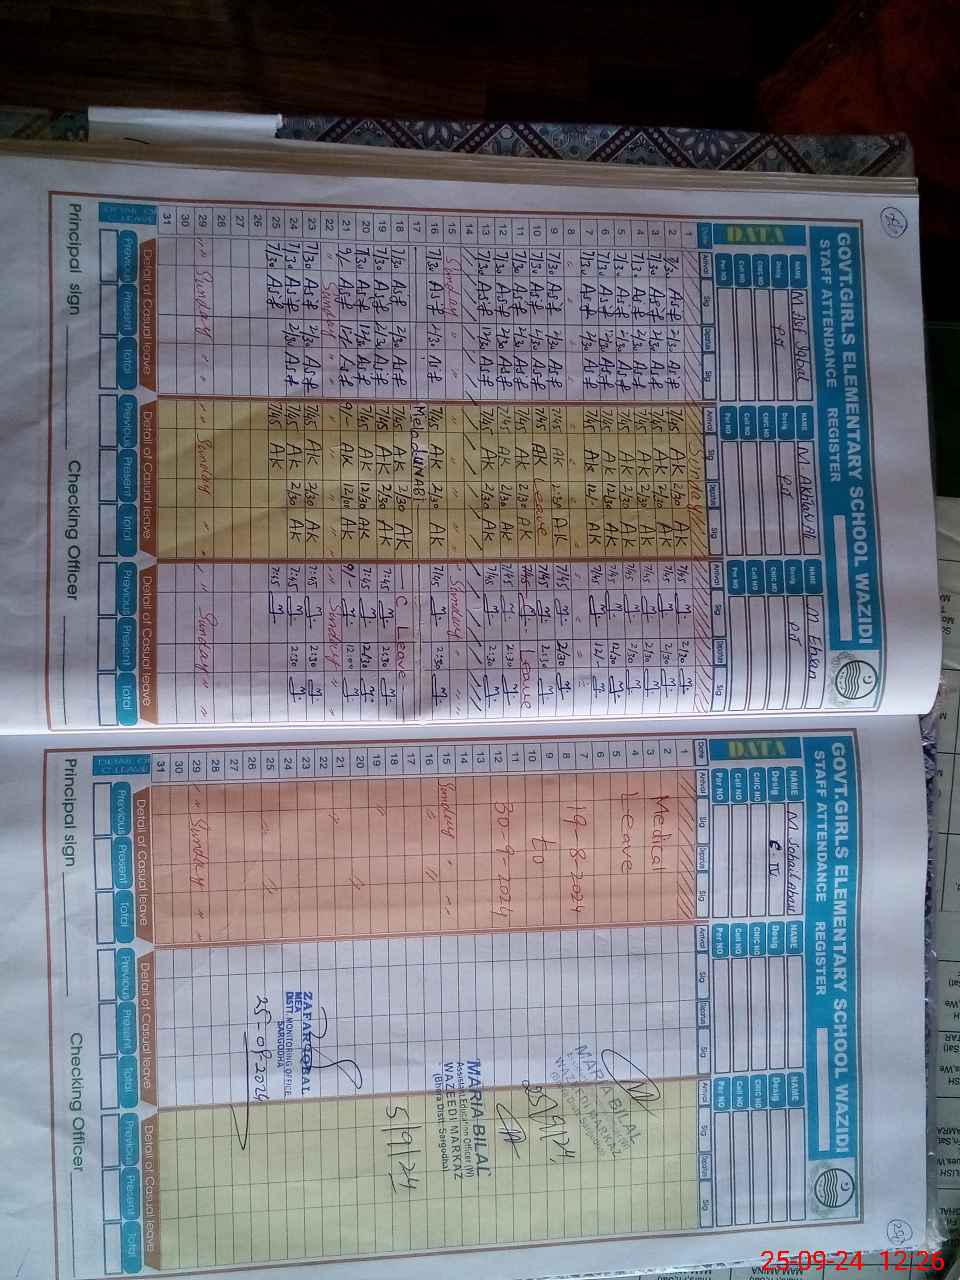 GOVT.GIRLS ELEMENTARY SCHOOL WAZIDI
STAFF ATTENDANCE REGISTER
DATA
NAME M. Asif Iqbal
Desig
CNIC NO
Cell NO
Per NO
NAME M. Akhtar Ali
Desig
CNIC NO
Cell NO
Per NO
NAME M. Ehsan
Desig
CNIC NO
Cell NO
Per NO
Date Arrival Sig Departue Sig Arrival Sig Departue Sig Arrival Sig Departue Sig
1 Sunday
2 7/30 As.f 2/30 As.f 7/45 AK 2/30 AK 7/45 M 2/30 M
3 7/30 As.f 2/30 As.f 7/45 AK 2/30 AK 7/45 M 2/30 M
4 7/30 As.f 2/30 As.f 7/45 AK 2/30 AK 7/45 M 2/30 M
5 7/30 As.f 2/30 As.f 7/45 AK 2/30 AK 7/45 M 2/30 M
6 7/30 As.f 12/30 As.f 7/45 AK 12/30 AK 7/45 M 12/30 M
7 7/30 As.f 2/30 As.f 7/45 AK 12/- AK 7/45 M 12/- M
8
9 7/30 As.f 2/30 As.f 7/45 AK 2:30 AK 7/45 M 2/30 M
10 7/30 As.f 2/30 As.f 7/45 AK Leave 7/45 M 2:30 M
11 7/30 As.f 2/30 As.f 7/45 AK 2/30 AK 7/45 Leave
12 7/30 As.f 2/30 As.f 7/45 AK 2/30 AK 7/45 M 2:30 M
13 7/30 As.f 12/30 As.f 7/45 AK 2/30 AK 7/45 M 2:30 M
14
15 Sunday " " " Sunday "
16 7/30 As.f 2/30 As.f 7/45 AK 2/30 AK 7/45 M 2:30 M
17
18 7/30 As.f 2/30 As.f 7/45 AK 2/30 AK C Leave
19 7/30 As.f 2/30 As.f 7/45 AK 2:30 AK 7:45 M 2:30 M
20 7/30 As.f 12/30 As.f 7/45 AK 12/30 AK 7:45 M 12/30 M
21 9/- As.f 12/- As.f 9/- AK 12/00 AK 9/- M 12:00 M
22 " Sunday " " " Sunday "
23 7/30 As.f 2/30 As.f 7/45 AK 2/30 AK 7:45 M 2:30 M
24 7/30 As.f 2/30 As.f 7/45 AK 2/30 AK 7:45 M 2:30 M
25 7/30 As.f 7/45 AK 7:45 M
26
27
28
29 " " Sunday " " " " Sunday " " " " Sunday " "
30
31
Detail of Casual leave Detail of Casual leave Detail of Casual leave
Previous Present Total Previous Present Total Previous Present Total
Principal sign Checking Officer
GOVT.GIRLS ELEMENTARY SCHOOL WAZIDI
STAFF ATTENDANCE REGISTER
DATA
NAME
Desig C-IV
CNIC NO
Cell NO
Per NO
NAME
Desig
CNIC NO
Cell NO
Per NO
NAME
Desig
CNIC NO
Cell NO
Per NO
Date Arrival Sig Departue Sig Arrival Sig Departue Sig Arrival Sig Departue Sig
1
2
3 Medical
4
5 Leave
6
7
8 19-8-2024
9
10 to
11
12 30-9-2024
13
14
15 Sunday " "
16
17
18
19
20
21
22
23
24
25
26
27
28
29 " " Sunday " "
30
31
MARIA BILAL
25/9/24
MARIA BILAL
Assistant Education Officer (W)
WAZEEDI MARKAZ
(Bhera Distt. Sargodha)
5/9/24
ZAFAR IQBAL
MEA
DISTT. MONITORING OFFICE
SARGODHA
25-09-2024
Detail of Casual leave Detail of Casual leave Detail of Casual leave
Previous Present Total Previous Present Total Previous Present Total
Principal sign Checking Officer
25-09-24 12:26